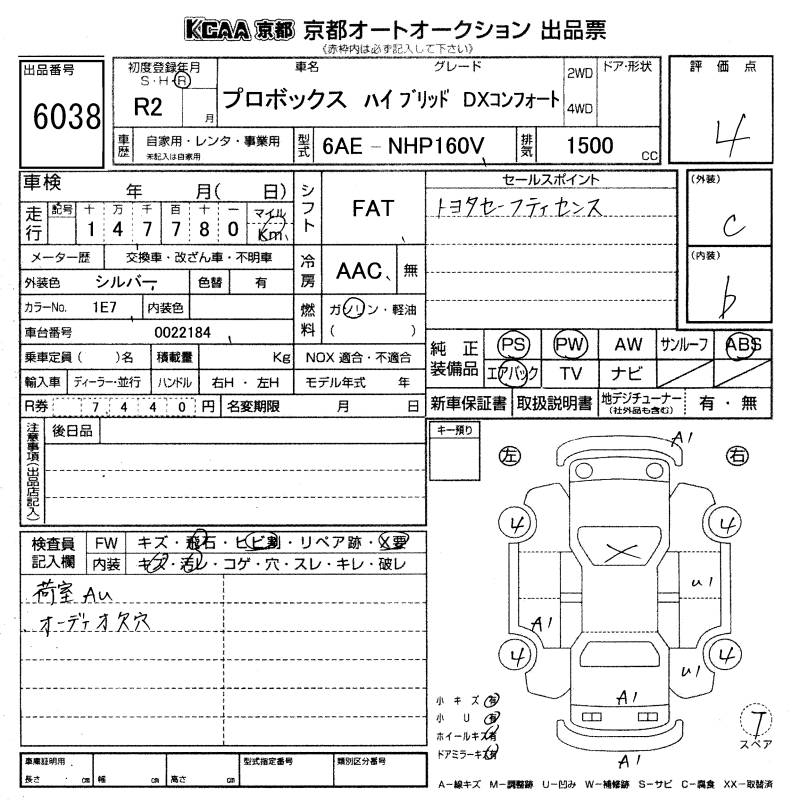 KCAA京都 京都オートオークション 出品票
《赤枠内は必ず記入して下さい》
出品番号
6038
初度登録年月
S・H・R
R2
月
車名
グレード
プロボックス ハイブリッド DXコンフォート
2WD
4WD
ドア・形状
評価点
4
車歴
自家用・レンタ・事業用
未記入は自家用
型式
6AE-NHP160V
排気
1500
CC
車検
年 月( 日)
シフト
FAT
セールスポイント
トヨタセーフティセンス
(外装)
C
(内装)
b
走行
記号
十 万 千 百 十 一
1 4 7 7 8 0
マイル
Km
メーター歴
交換車・改ざん車・不明車
冷房
AAC
無
外装色
シルバー
色替
有
カラーNo.
1E7
内装色
燃料
ガソリン・軽油
( )
車台番号
0022184
乗車定員( )名
積載量
Kg
NOX 適合・不適合
純正装備品
PS
PW
AW
サンルーフ
ABS
エアバック
TV
ナビ
輸入車
ディーラー・並行
ハンドル
右H・左H
モデル年式 年
R券
7 4 4 0 円
名変期限
月 日
新車保証書
取扱説明書
地デジチューナー
(社外品も含む)
有・無
注意事項(出品店記入)
後日品
キー預り
左
右
A1
4
4
U1
A1
4
4
U1
A1
A1
検査員記入欄
FW
キズ・飛石・ヒビ割・リペア跡・X要
内装
キズ・汚レ・コゲ・穴・スレ・キレ・破レ
荷室 AU
オーディオ欠穴
小キズ 有
小U 有
ホイールキズ 有
ドアミラーキズ 有
T
スペア
車庫証明用
長さ cm
幅 cm
高さ cm
型式指定番号
類別区分番号
A-線キズ M-調整跡 U-凹み W-補修跡 S-サビ C-腐食 XX-取替済